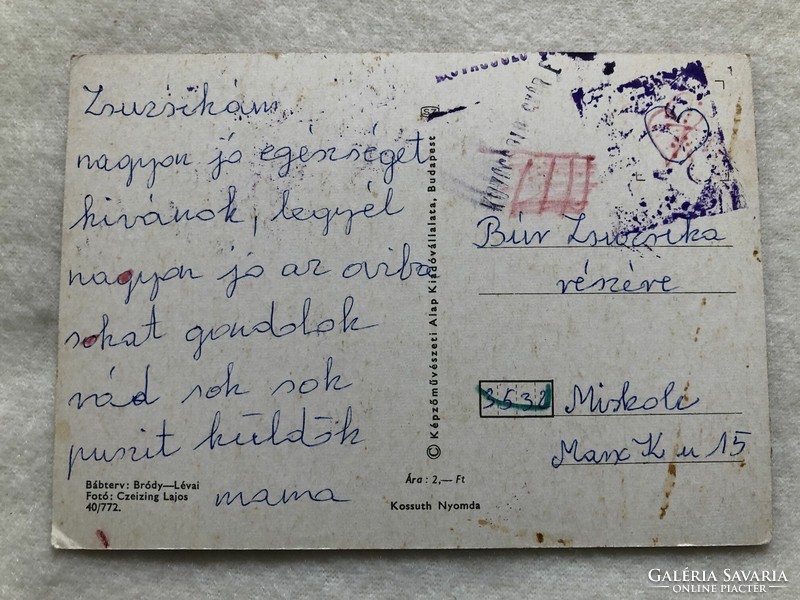 Zsuzsikám
nagyon jó egészséget
kivánok, legyél
nagyon jó az oviba
sokat gondolok
rád sok sok
puszit küldök
mama
Bábterv: Bródy—Lévai
Fotó: Czeizing Lajos
40/772.
© Képzőművészeti Alap Kiadóvállalata, Budapest
Ára: 2,— Ft
Kossuth Nyomda
Búv Zsuzsika
részére
3532 Miskolc
Marx K u 15
GALÉRIA SAVARIA
ONLINE PIACTÉR